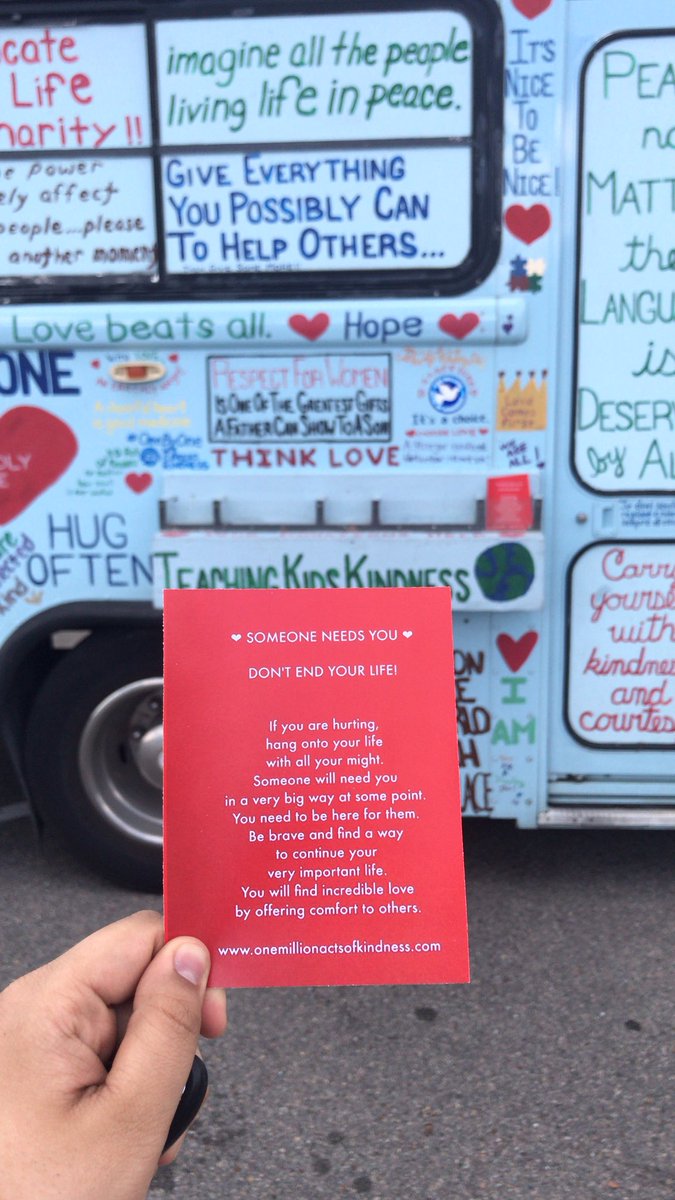 cate
Life
harity!!
imagine all the people
living life in peace.
e power
ely affect
people...please
another moment
GIVE EVERYTHING
YOU POSSIBLY CAN
TO HELP OTHERS...
IT'S
NICE
TO
BE
NICE!
PEA
no
MATT
the
LANGU
is
DESERV
by AL
Love beats all. ♥ Hope ♥
ONE
RESPECT FOR WOMEN
IS ONE OF THE GREATEST GIFTS
A FATHER CAN SHOW TO A SON
THINK LOVE
It's a choice.
Love
Comes
First
WE ARE
ALL!
HUG
OFTEN
TEACHING KIDS KINDNESS
Carry
yourse
with
kindne
and
courtes
I
AM
❤ SOMEONE NEEDS YOU ❤
DON'T END YOUR LIFE!
If you are hurting,
hang onto your life
with all your might.
Someone will need you
in a very big way at some point.
You need to be here for them.
Be brave and find a way
to continue your
very important life.
You will find incredible love
by offering comfort to others.
www.onemillionactsofkindness.com